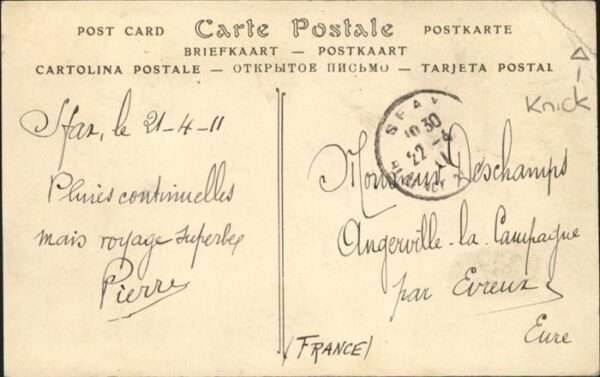 POST CARD Carte Postale POSTKARTE
BRIEFKAART — POSTKAART
CARTOLINA POSTALE — ОТКРЫТОЕ ПИСЬМО — TARJETA POSTAL
Knick
Sfax, le 21-4-11
Pluies continuelles
mais voyage superbe
Pierre
SFAX
10 30
22 - 4
11
Monsieur Deschamps
Angerville-la-Campagne
par Evreux
Eure
(FRANCE)